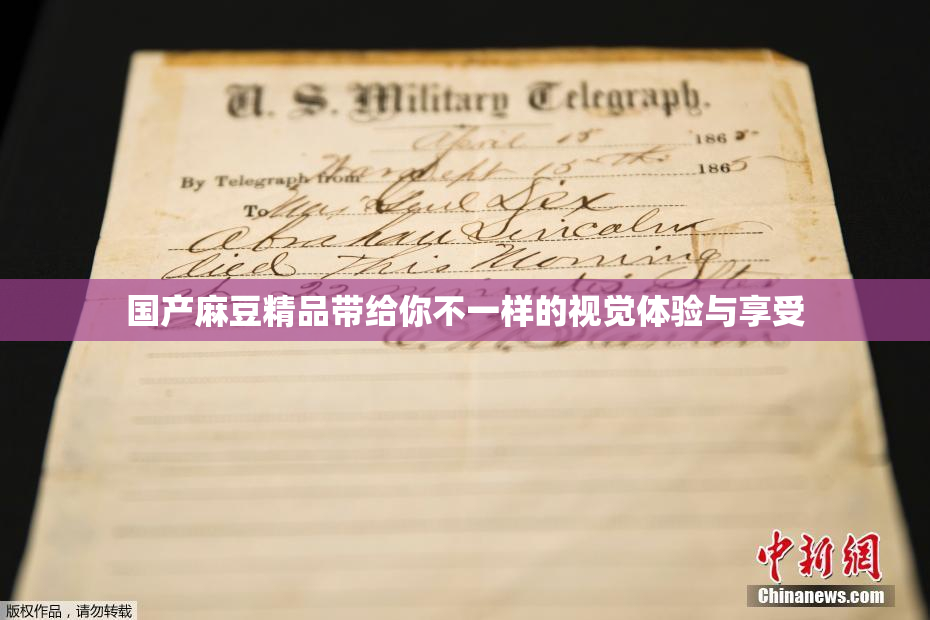 U. S. Military Telegraph.
April 15 1865
By Telegraph from War Dept 15th 1865
To Maj Genl Dix
Abraham Lincoln
died This Morning
at 22 minutes after
国产麻豆精品带给你不一样的视觉体验与享受
E. M. Stanton
中新网
Chinanews.com
版权作品，请勿转载